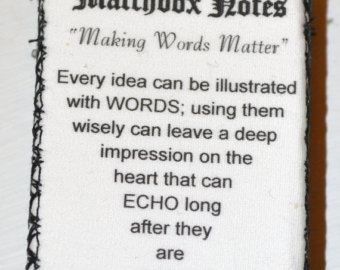 Matchbox Notes
"Making Words Matter"
Every idea can be illustrated
with WORDS; using them
wisely can leave a deep
impression on the
heart that can
ECHO long
after they
are